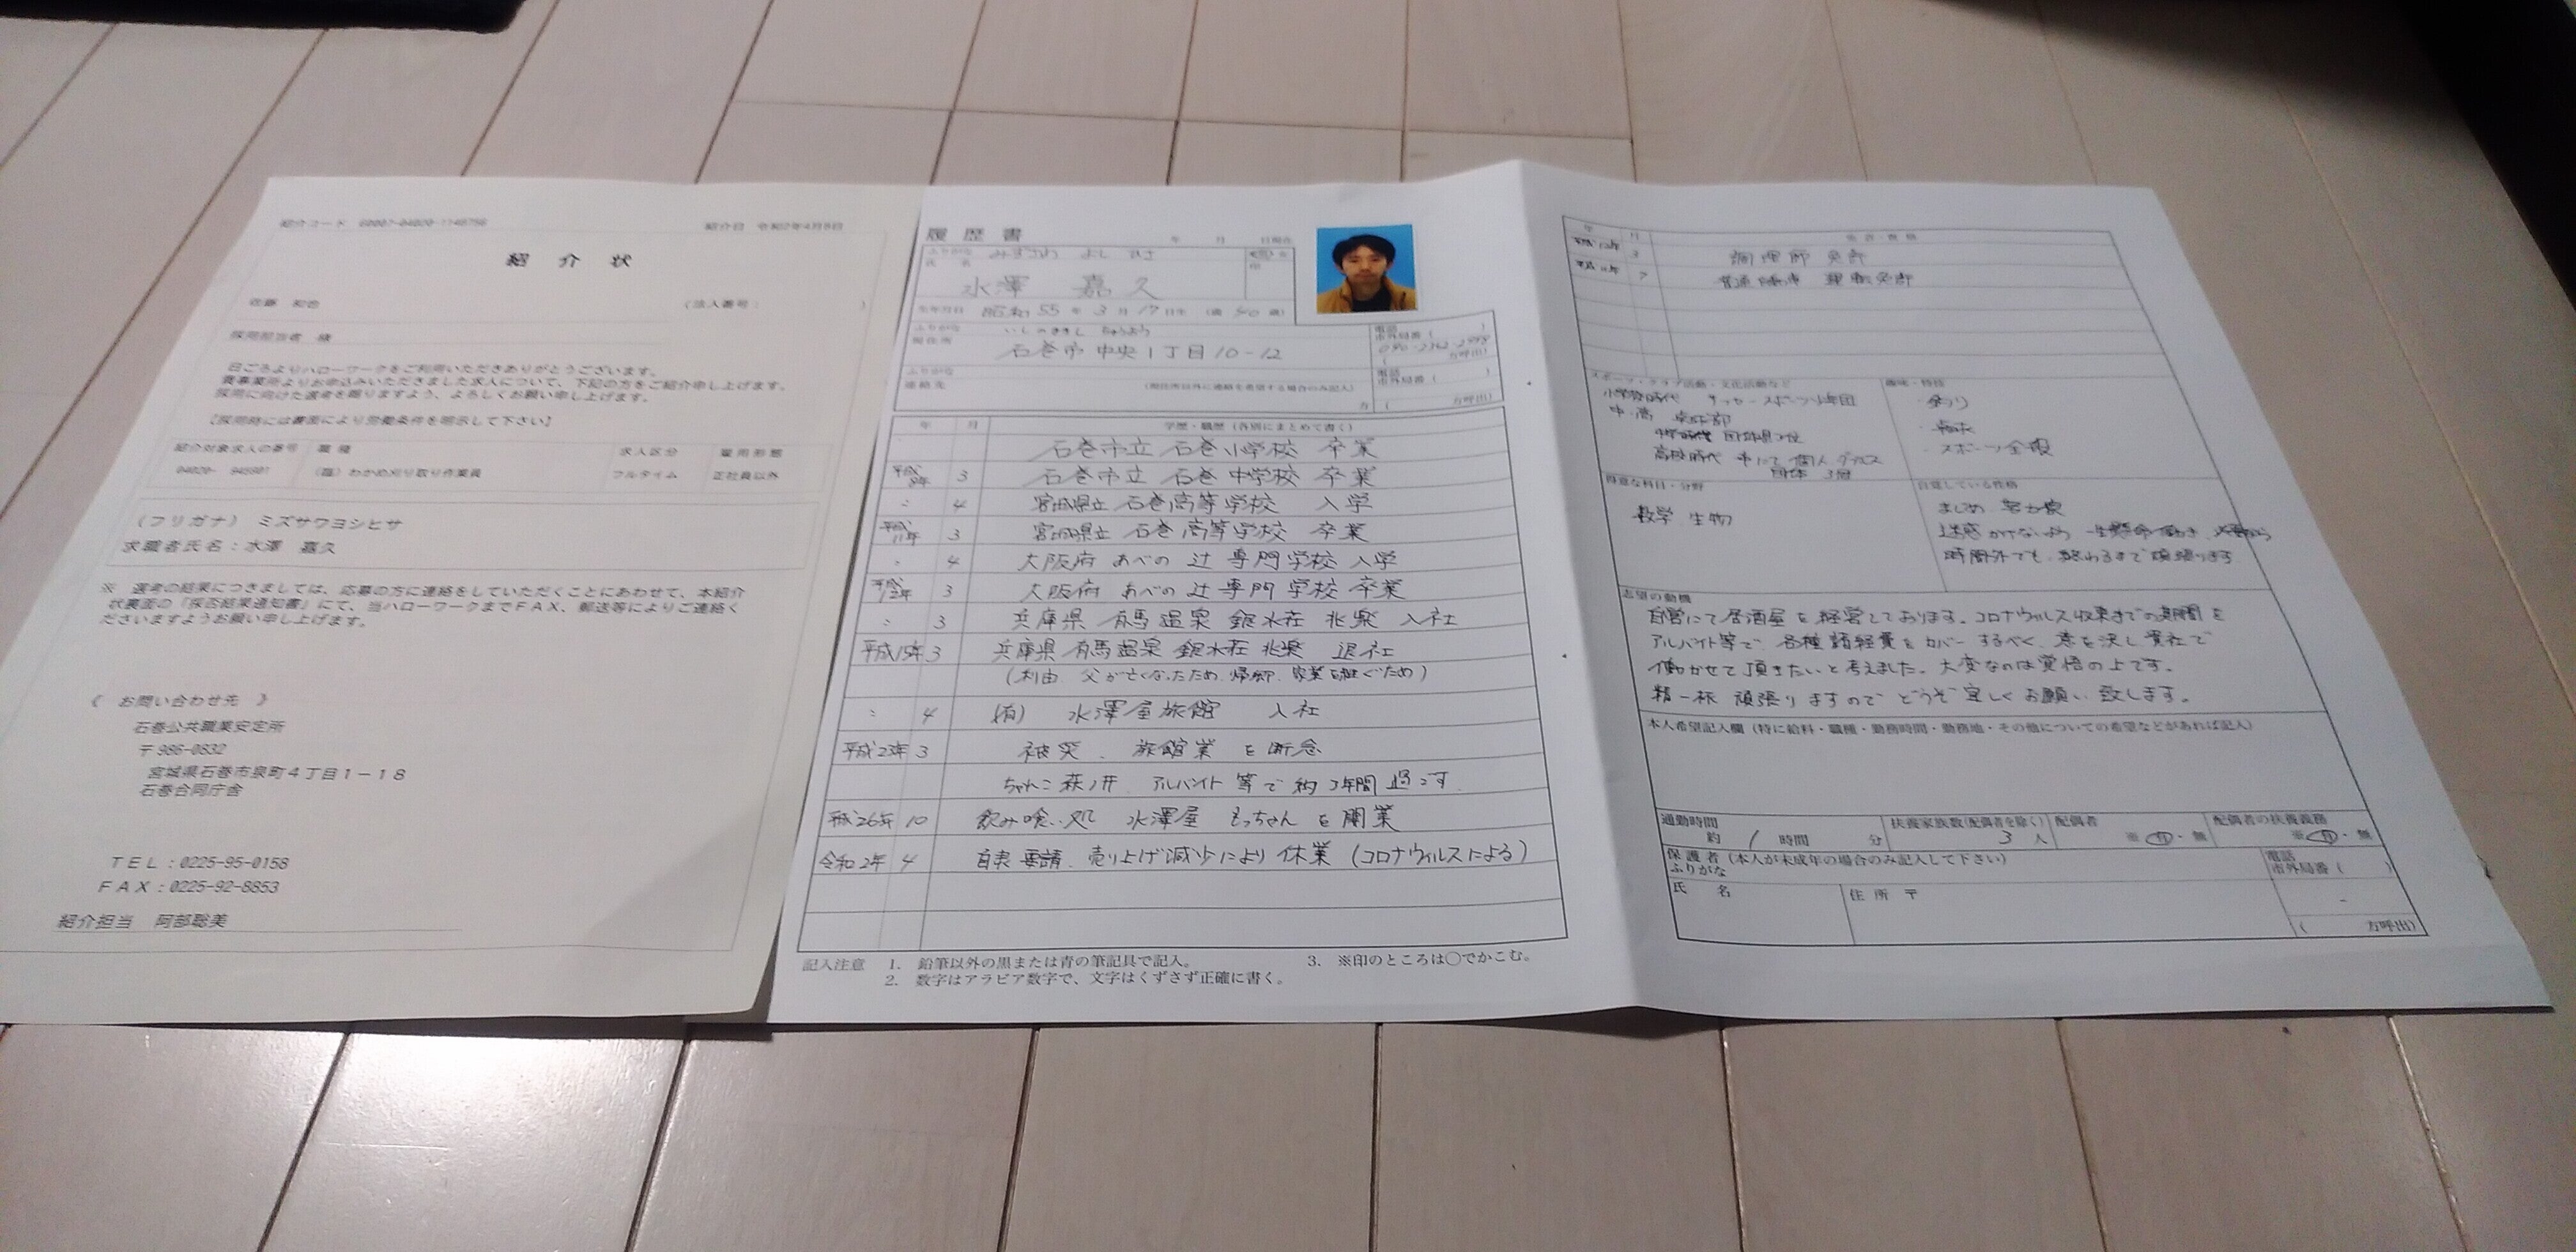 紹介コード
紹介日 令和2年4月9日
紹介状
佐藤 和也
(法人番号: )
採用担当者 様
日ごろよりハローワークをご利用いただきありがとうございます。
貴事業所よりお申込みいただきました求人について、下記の方をご紹介申し上げます。
採用に向けた選考を賜りますよう、よろしくお願い申し上げます。
【採用時には書面により労働条件を明示して下さい】
紹介対象求人の番号 職種 求人区分 雇用形態
04020- (臨)わかめ刈り取り作業員 フルタイム 正社員以外
(フリガナ) ミズサワヨシヒサ
求職者氏名:水澤 嘉久
※ 選考の結果につきましては、応募の方に連絡をしていただくことにあわせて、本紹介
状裏面の「採否結果通知書」にて、当ハローワークまでFAX、郵送等によりご連絡く
ださいますようお願い申し上げます。
《 お問い合わせ先 》
石巻公共職業安定所
〒986-0832
宮城県石巻市泉町4丁目1-18
石巻合同庁舎
TEL:0225-95-0158
FAX:0225-92-8853
紹介担当 阿部聡美
履歴書
年 月 日現在
ふりがな みずさわ よし ひさ
氏名 水澤 嘉久
印
生年月日 昭和55年3月17日生 (満40歳)
ふりがな いしのまきし ちゅうおう
現住所 石巻市中央1丁目10-12
電話
市外局番( )
( 方呼出)
ふりがな
連絡先 (現住所以外に連絡を希望する場合のみ記入)
方
電話
市外局番( )
( 方呼出)
年 月 学歴・職歴(各別にまとめて書く)
石巻市立 石巻小学校 卒業
平成8年 3 石巻市立 石巻中学校 卒業
〃 4 宮城県立石巻高等学校 入学
平成11年 3 宮城県立 石巻高等学校 卒業
〃 4 大阪府 あべの 辻 専門学校 入学
平成12年 3 大阪府 あべの 辻 専門学校 卒業
〃 3 兵庫県 有馬温泉 銀水荘 兆楽 入社
平成15年 3 兵庫県 有馬温泉 銀水荘 兆楽 退社
(利由 父が亡くなったため、帰郷、家業を継ぐため)
〃 4 (有) 水澤屋旅館 入社
平成23年 3 被災、旅館業を断念
ちゃんこ萩ノ井 アルバイト等で約3年間過ごす。
平成26年 10 飲み喰い処 水澤屋 もっちゃんを開業
令和2年 4 自粛要請、売り上げ減少により休業(コロナウィルスによる)
記入注意 1. 鉛筆以外の黒または青の筆記具で記入。 3. ※印のところは〇でかこむ。
2. 数字はアラビア数字で、文字はくずさず正確に書く。
年 月 免許・資格
平成12年 3 調理師 免許
7 普通自動車 運転免許
スポーツ・クラブ活動・文化活動など
小学校時代 サッカースポーツ少年団
中・高 卓球部
高校時代 個人ダブルス
団体 3冠
趣味・特技
・釣り
・スポーツ全般
得意な科目・分野
数学 生物
自覚している性格
まじめ 努力家
迷惑かけないよう 一生懸命働き
時間外でも、終わるまで頑張ります
志望の動機
自営にて居酒屋を経営しております。コロナウィルス収束までの期間を
アルバイト等で、各種諸経費をカバーするべく、意を決し貴社で
働かせて頂きたいと考えました。大変なのは覚悟の上です。
精一杯 頑張りますので どうぞ宜しくお願い致します。
本人希望記入欄(特に給料・職種・勤務時間・勤務地・その他についての希望などがあれば記入)
通勤時間
約 1 時間 分
扶養家族数(配偶者を除く)
3 人
配偶者
※ 有・無
配偶者の扶養義務
※ 有・無
保護者(本人が未成年の場合のみ記入して下さい)
ふりがな
氏名
住所 〒
電話
市外局番( )
-
( 方呼出)